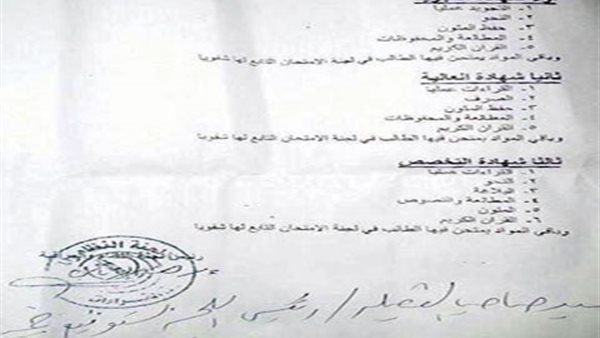 ١- التجويد عمليا
٢- النحو
٣- حفظ المتون
٤- المطالعة والمحفوظات
٥- القران الكريم
وباقي المواد يمتحن فيها الطالب في لجنة الامتحان التابع لها شفويا
ثانيا شهادة العالية
١- القراءات عمليا
٢- الصرف
٣- حفظ المتون
٤- المطالعة والمحفوظات
٥- القران الكريم
وباقي المواد يمتحن فيها الطالب في لجنة الامتحان التابع لها شفويا
ثالثا شهادة التخصص
١- القراءات عمليا
٢- النحو
٣- البلاغة
٤- المطالعة والنصوص
٥- المتون
٦- القران الكريم
وباقي المواد يمتحن فيها الطالب في لجنة الامتحان التابع لها شفويا
رئيس لجنة
السيد صاحب الفضيلة / رئيس اللجنة